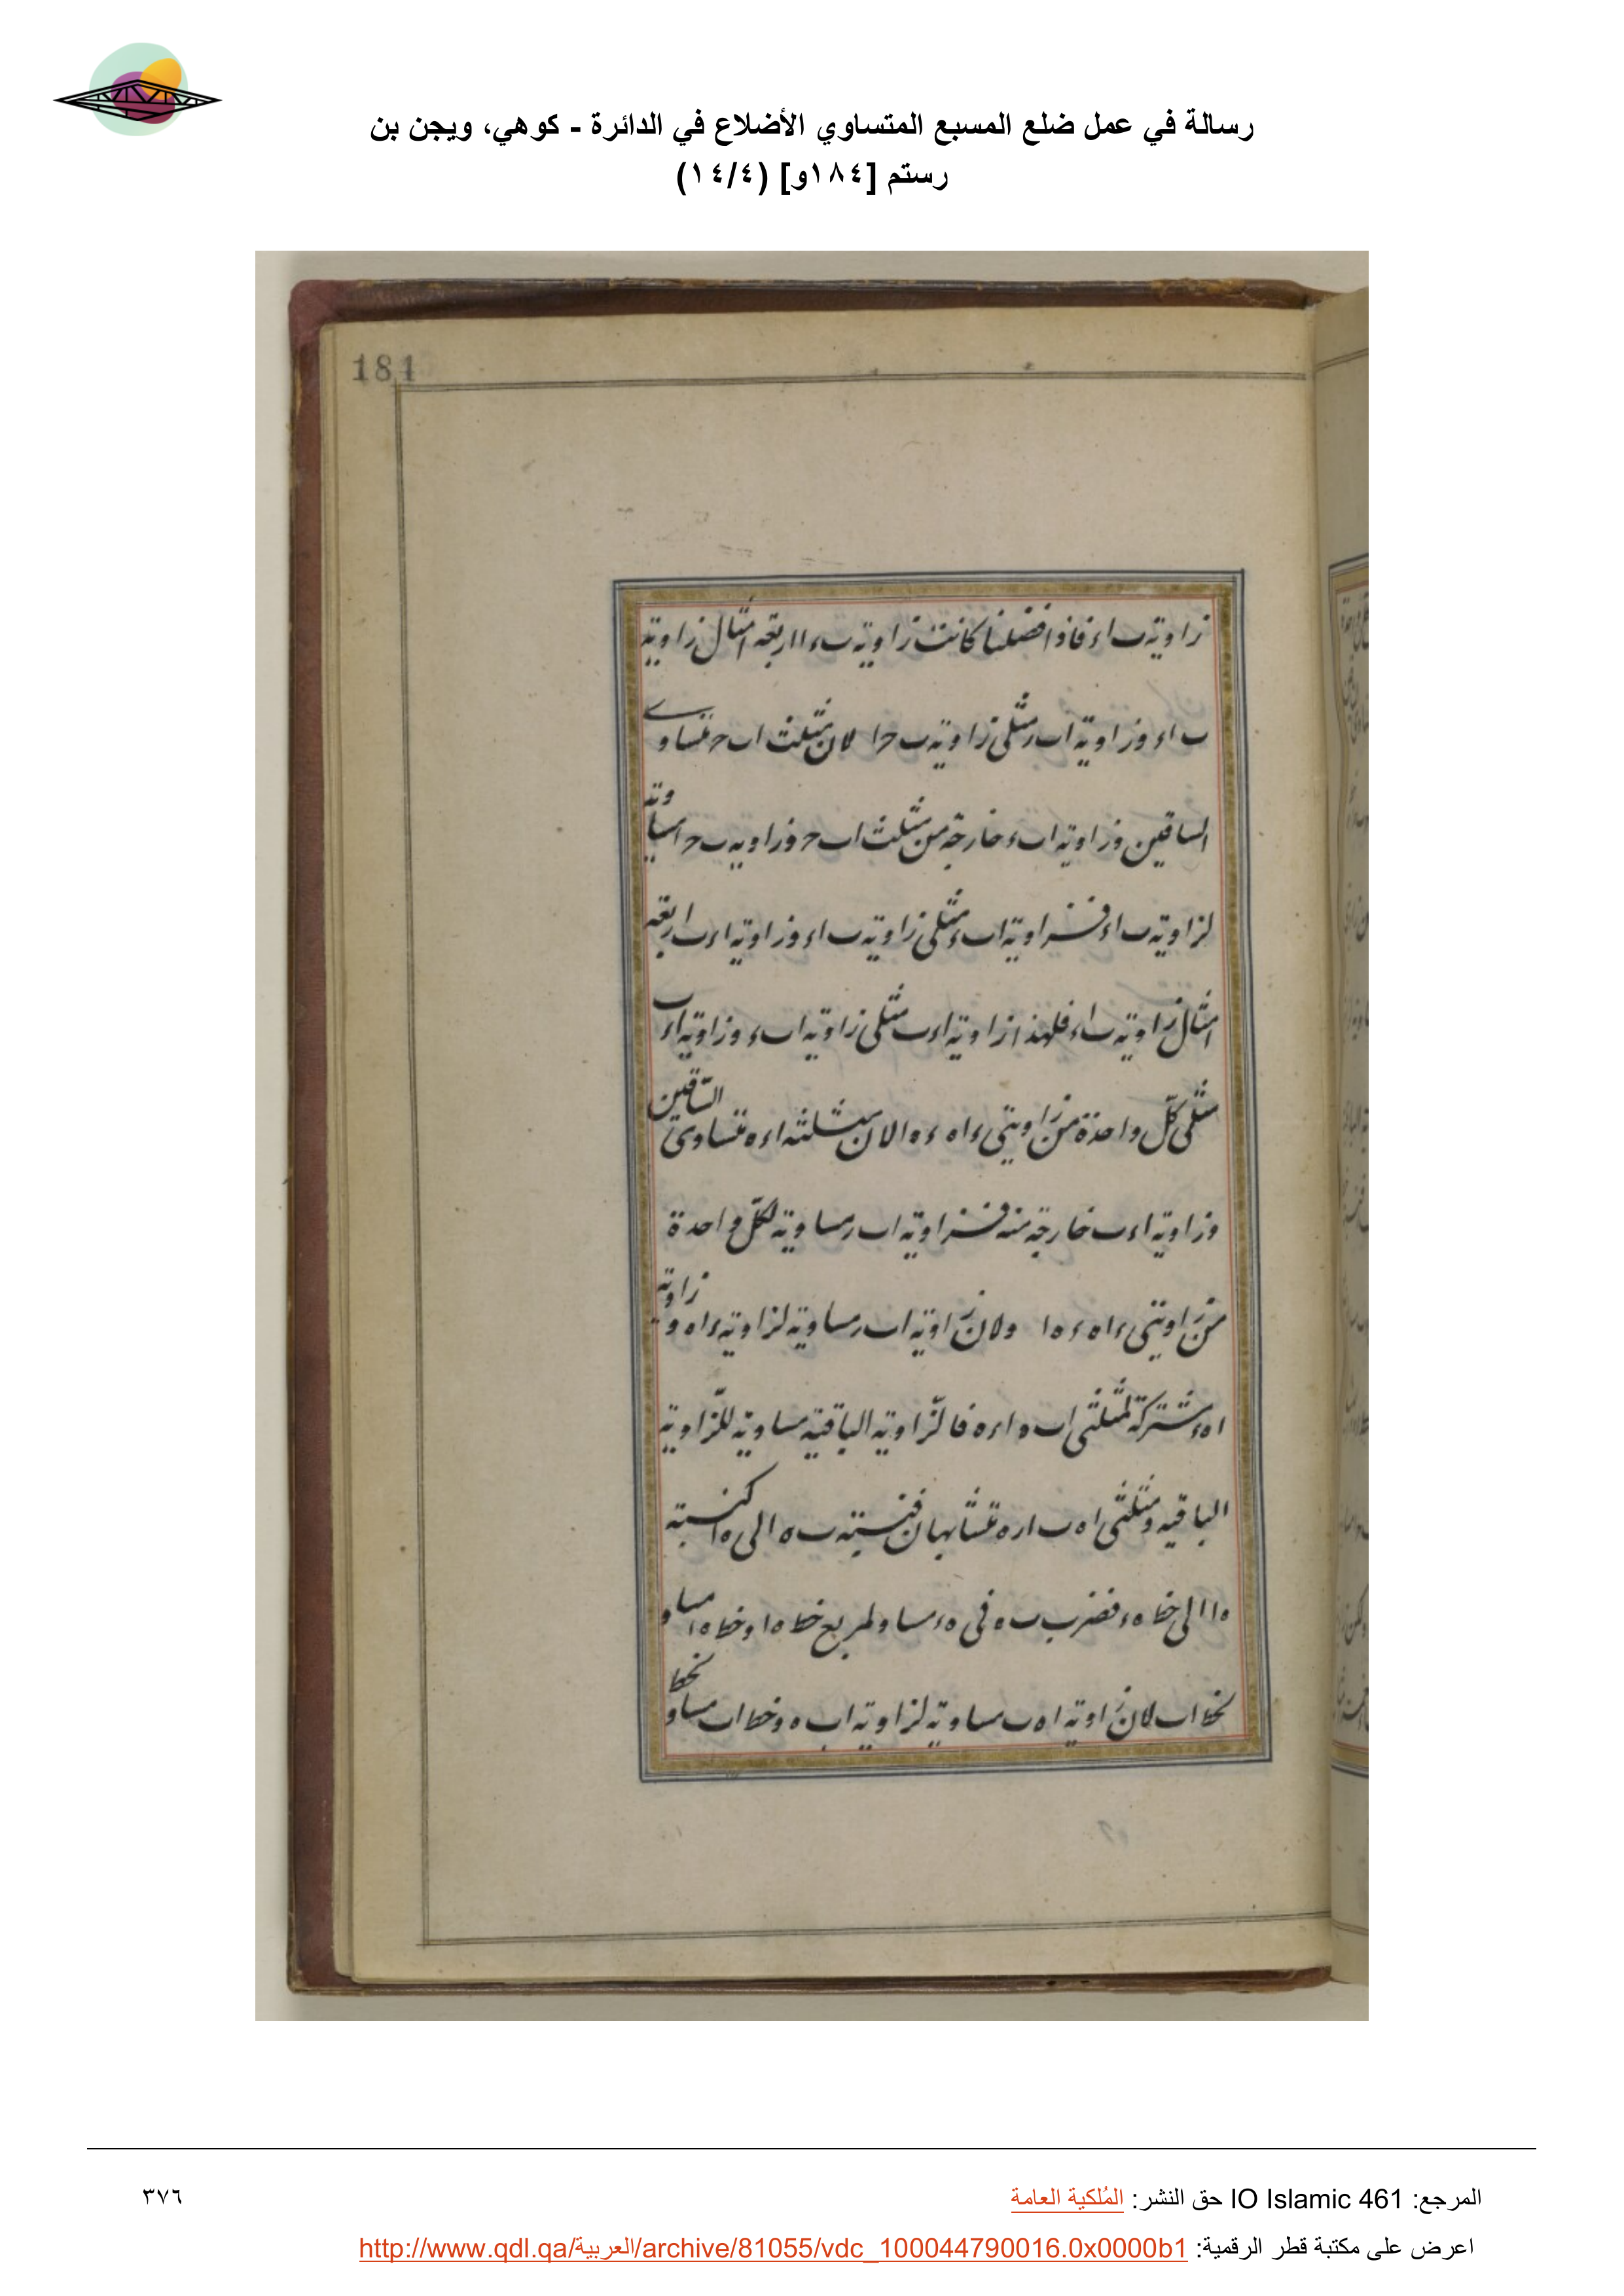 رسالة في عمل ضلع المسبع المتساوي الأضلاع في الدائرة - كوهي، ويجن بن
رستم [١٨٤و] (١٤/٤)
184
زاوية ب اء فاذا فصلنا كانت زاوية ب ء ا اربعة امثال زاوية
ب اء وزاوية اب ء مثلى زاوية ب حا لان مثلث اب ح متساوى
الساقين وزاوية اب ء خارجة من مثلث اب ح وزاوية ب حا مساوية
لزاوية ب اء فزاوية اب ء مثلى زاوية ب اء وزاوية اء ب اربعة
امثال زاوية ب اء فلهذا زاوية اء ب مثلى زاوية اب ء وزاوية اء ب
مثلى كل واحدة من زاويتى ء اه ء ه ا لان مثلثه اء ه متساوى الساقين
وزاوية اء ب خارجة منه فزاوية اب ء مساوية لكل واحدة
من زاويتى ء اه ء ه ا ولان زاوية اب ء مساوية لزاوية ء اه وزاوية
اه ء مشتركة لمثلثى اب ه اء ه فالزاوية الباقية مساوية للزاوية
الباقيه ومثلثى اه ب اء ه متشابهان فنسبته ب ه الى ه ا كنسبة
ه ا الى خط ه ء فضرب ب ه فى ه ء مساو لمربع خط ه ا وخط ه ا مساو
لخط اب لان زاوية اه ب مساوية لزاوية اب ه وخط اب مساو لخط
المرجع: IO Islamic 461 حق النشر: المُلكية العامة
٣٧٦
اعرض على مكتبة قطر الرقمية: http://www.qdl.qa/العربية/archive/81055/vdc_100044790016.0x0000b1